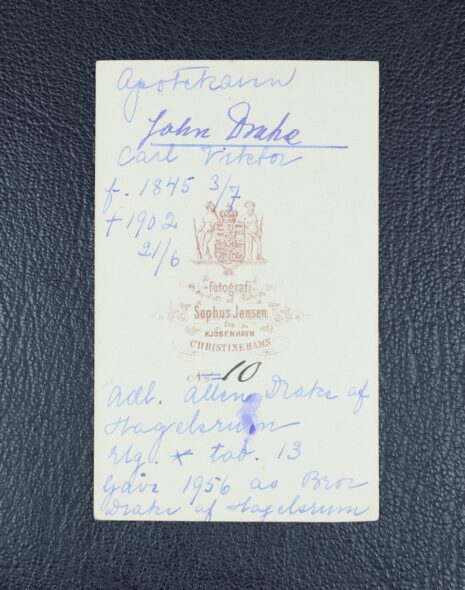 Apotekaren
John Drake
Carl Viktor
f. 1845 3/7
+ 1902
21/6
Fotografi
af
Sophus Jensen
fra
KJÖBENHAVN
CHRISTINEHAMN
No 10
Adl. ätten Drake af
Hagelsrum
tab. 13
Gåva 1956 av Bror
Drake af Hagelsrum